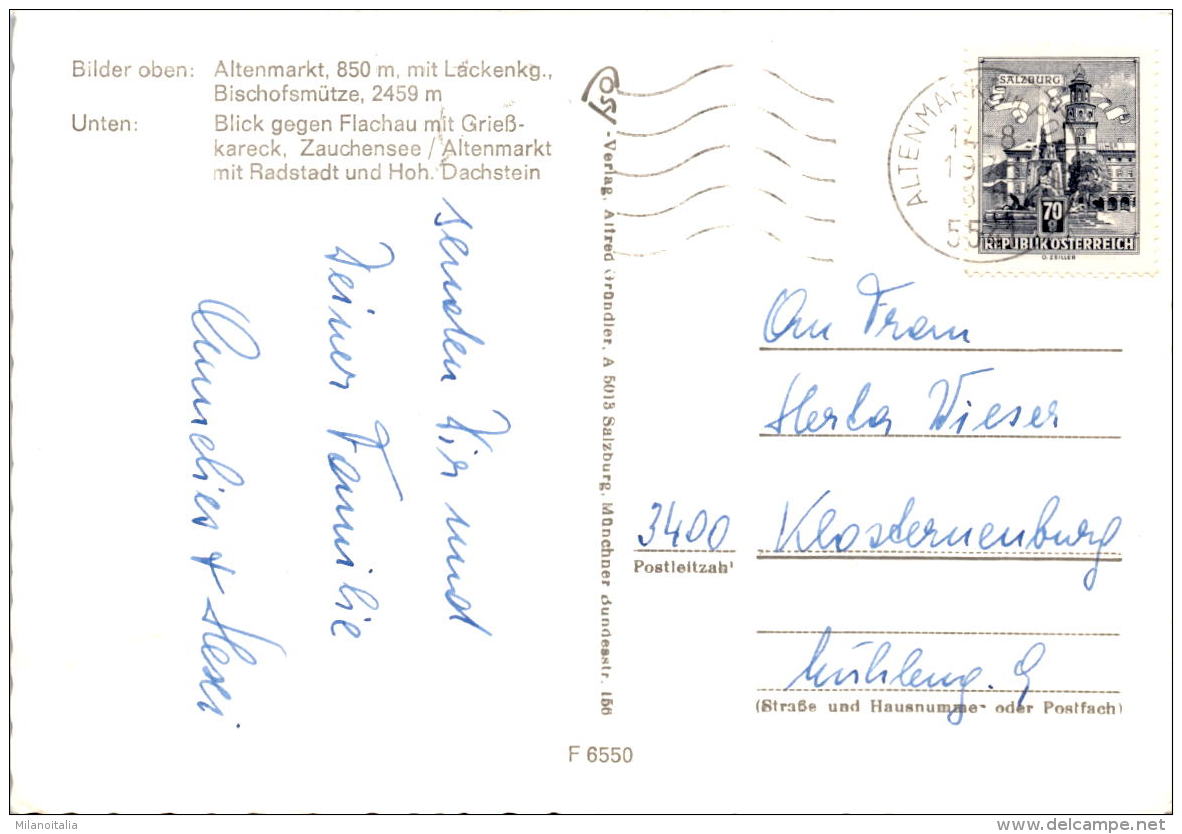 Bilder oben: Altenmarkt, 850 m, mit Lackenkg.,
Bischofsmütze, 2459 m
Unten: Blick gegen Flachau mit Grieß-
kareck, Zauchensee / Altenmarkt
mit Radstadt und Hoh. Dachstein
senden Dir und
Deiner Familie
Annelies + Hexi
-Verlag, Alfred Gründler, A 5013 Salzburg, Münchner Bundesstr. 156
ALTENMARKT
SALZBURG
70 g
REPUBLIK ÖSTERREICH
O. ZEILLER
An Frau
Herta Wieser
3400 Klosterneuburg
Postleitzahl
Mühleng. 9
(Straße und Hausnummer oder Postfach)
F 6550
Milanoitalia
delcampe.net